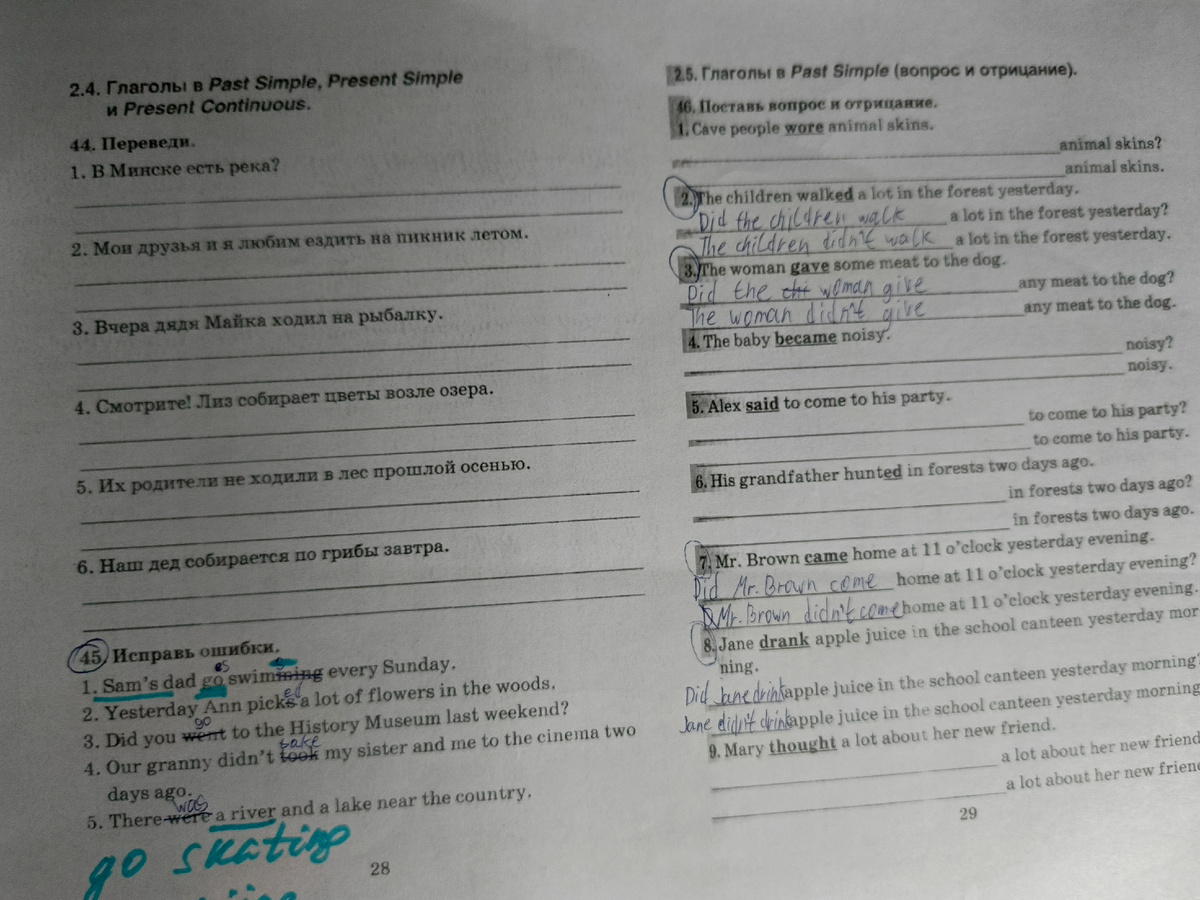 2.4. Глаголы в Past Simple, Present Simple
и Present Continuous.
44. Переведи.
1. В Минске есть река?
2. Мои друзья и я любим ездить на пикник летом.
3. Вчера дядя Майка ходил на рыбалку.
4. Смотрите! Лиз собирает цветы возле озера.
5. Их родители не ходили в лес прошлой осенью.
6. Наш дед собирается по грибы завтра.
45. Исправь ошибки.
es
1. Sam's dad go swimming every Sunday.
ed
2. Yesterday Ann picks a lot of flowers in the woods.
go
3. Did you went to the History Museum last weekend?
take
4. Our granny didn't took my sister and me to the cinema two
days ago.
was
5. There were a river and a lake near the country.
go skating
28
2.5. Глаголы в Past Simple (вопрос и отрицание).
46. Поставь вопрос и отрицание.
1. Cave people wore animal skins.
animal skins?
animal skins.
2. The children walked a lot in the forest yesterday.
Did the children walk a lot in the forest yesterday?
The children didn't walk a lot in the forest yesterday.
3. The woman gave some meat to the dog.
Did the chi woman give any meat to the dog?
The woman didn't give any meat to the dog.
4. The baby became noisy.
noisy?
noisy.
5. Alex said to come to his party.
to come to his party?
to come to his party.
6. His grandfather hunted in forests two days ago.
in forests two days ago?
in forests two days ago.
7. Mr. Brown came home at 11 o'clock yesterday evening.
Did Mr. Brown come home at 11 o'clock yesterday evening?
Mr. Brown didn't come home at 11 o'clock yesterday evening.
8. Jane drank apple juice in the school canteen yesterday mor
ning.
Did Jane drink apple juice in the school canteen yesterday morning?
Jane didn't drink apple juice in the school canteen yesterday morning
9. Mary thought a lot about her new friend.
a lot about her new friend
a lot about her new friend
29